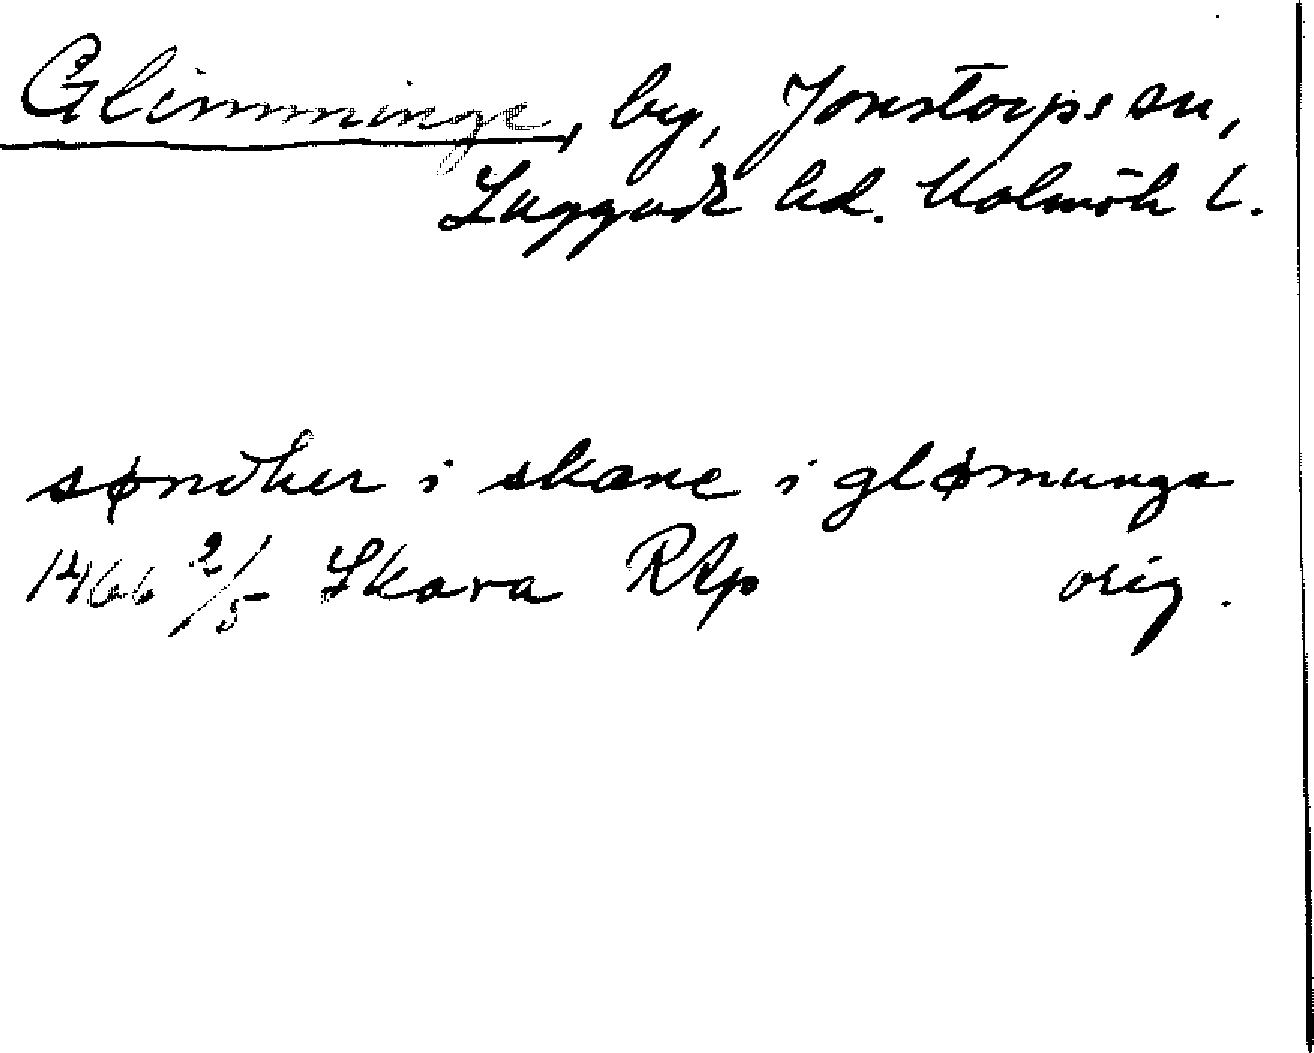 Glimminge, by, Jonstorps sn,
Luggude hd. Malmöh l.
søndher i skane i glømunge
1466 2/5 Skara RAp orig.